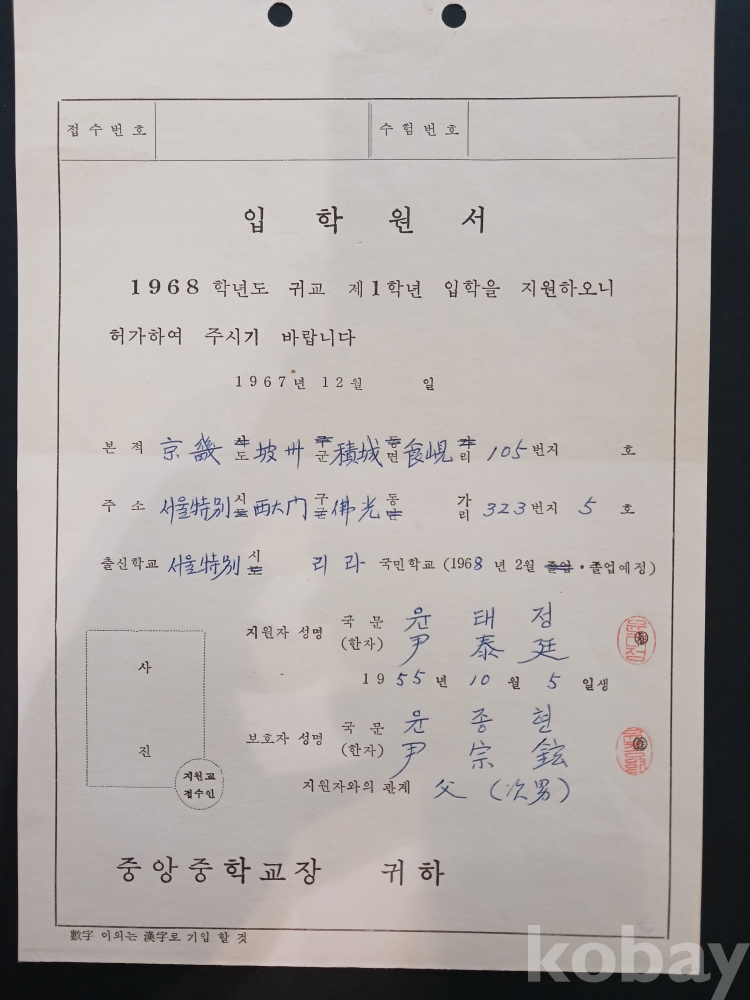 접수번호 수험번호
입학원서
1968 학년도 귀교 제1학년 입학을 지원하오니
허가하여 주시기 바랍니다
1967년 12월 일
본적 京畿 시도 坡州 구군 積城 동면 食峴 가리 105 번지 호
주소 서울特別 시도 西大门 구군 佛光 동면 가리 323 번지 5 호
출신학교 서울特別 시도 리라 국민학교 (1968 년 2월 졸업·졸업예정)
지원자 성명 국문 윤태정
(한자) 尹泰廷
1955년 10월 5일생
보호자 성명 국문 윤종현
(한자) 尹宗鉉
지원자와의 관계 父 (次男)
사
진
지원교
접수인
중앙중학교장 귀하
數字 이외는 漢字로 기입 할 것
kobay